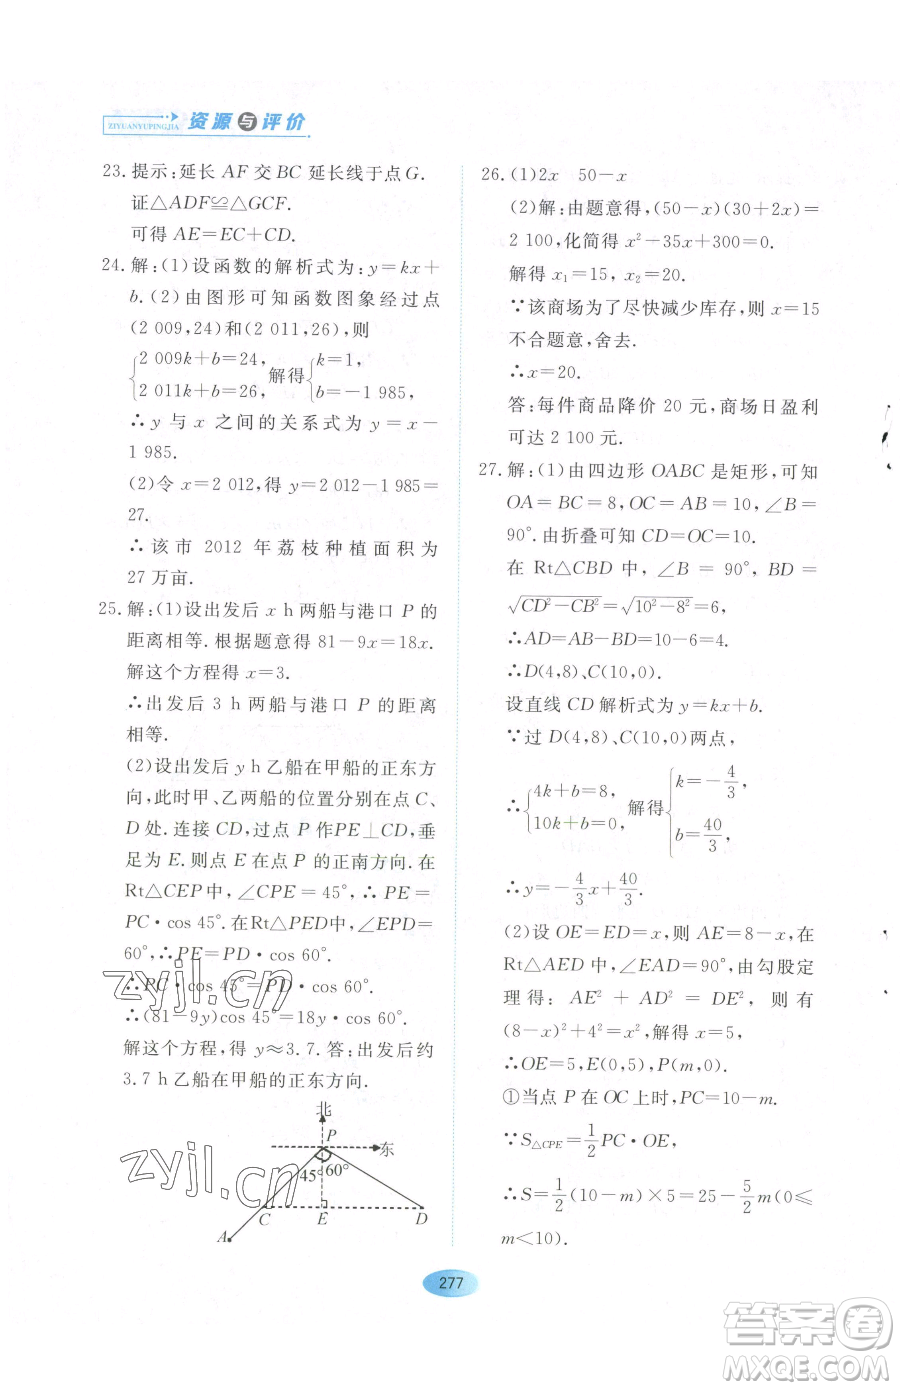 ZIYUANYUPINGJIA
资源与评价
23. 提示:延长 AF 交 BC 延长线于点G.
证△ADF≌△GCF.
可得 AE=EC+CD.
24. 解:(1)设函数的解析式为:y=kx+
b.(2)由图形可知函数图象经过点
(2 009,24)和(2 011,26),则
{2 009k+b=24, 2 011k+b=26, 解得{k=1, b=-1 985,
∴y 与 x 之间的关系式为 y=x-
1 985.
(2)令 x=2 012,得 y=2 012-1 985=
27.
∴该市 2012 年荔枝种植面积为
27 万亩.
25. 解:(1)设出发后 x h 两船与港口 P 的
距离相等.根据题意得 81-9x=18x.
解这个方程得 x=3.
∴出发后 3 h 两船与港口 P 的距离
相等.
(2)设出发后 y h 乙船在甲船的正东方
向,此时甲、乙两船的位置分别在点 C、
D 处.连接 CD,过点 P 作PE⊥CD,垂
足为 E.则点 E 在点 P 的正南方向.在
Rt△CEP 中,∠CPE=45°,∴PE=
PC·cos 45°.在Rt△PED中,∠EPD=
60°,∴PE=PD·cos 60°.
∴PC·cos 45°=PD·cos 60°.
∴(81-9y)cos 45°=18y·cos 60°.
解这个方程,得 y≈3.7.答:出发后约
3.7 h 乙船在甲船的正东方向.
北
P
东
45° 60°
C E D
A
26. (1)2x 50-x
(2)解:由题意得,(50-x)(30+2x)=
2 100,化简得 x²-35x+300=0.
解得 x₁=15, x₂=20.
∵该商场为了尽快减少库存,则 x=15
不合题意,舍去.
∴x=20.
答:每件商品降价 20 元,商场日盈利
可达 2 100 元.
27. 解:(1)由四边形 OABC 是矩形,可知
OA=BC=8,OC=AB=10,∠B=
90°.由折叠可知 CD=OC=10.
在 Rt△CBD 中,∠B=90°,BD=
√(CD²-CB²)=√(10²-8²)=6,
∴AD=AB-BD=10-6=4.
∴D(4,8)、C(10,0).
设直线 CD 解析式为 y=kx+b.
∵过 D(4,8)、C(10,0)两点,
∴{4k+b=8, 10k+b=0, 解得{k=-4/3, b=40/3,
∴y=-4/3x+40/3.
(2)设 OE=ED=x,则 AE=8-x,在
Rt△AED 中,∠EAD=90°,由勾股定
理得:AE²+AD²=DE²,则有
(8-x)²+4²=x²,解得 x=5,
∴OE=5,E(0,5),P(m,0).
①当点 P 在 OC 上时,PC=10-m.
∵S△CPE=1/2PC·OE,
∴S=1/2(10-m)×5=25-5/2m(0≤
m<10).
277
zyjl.cn
zyjl.cn
答案圈
MXQE.COM